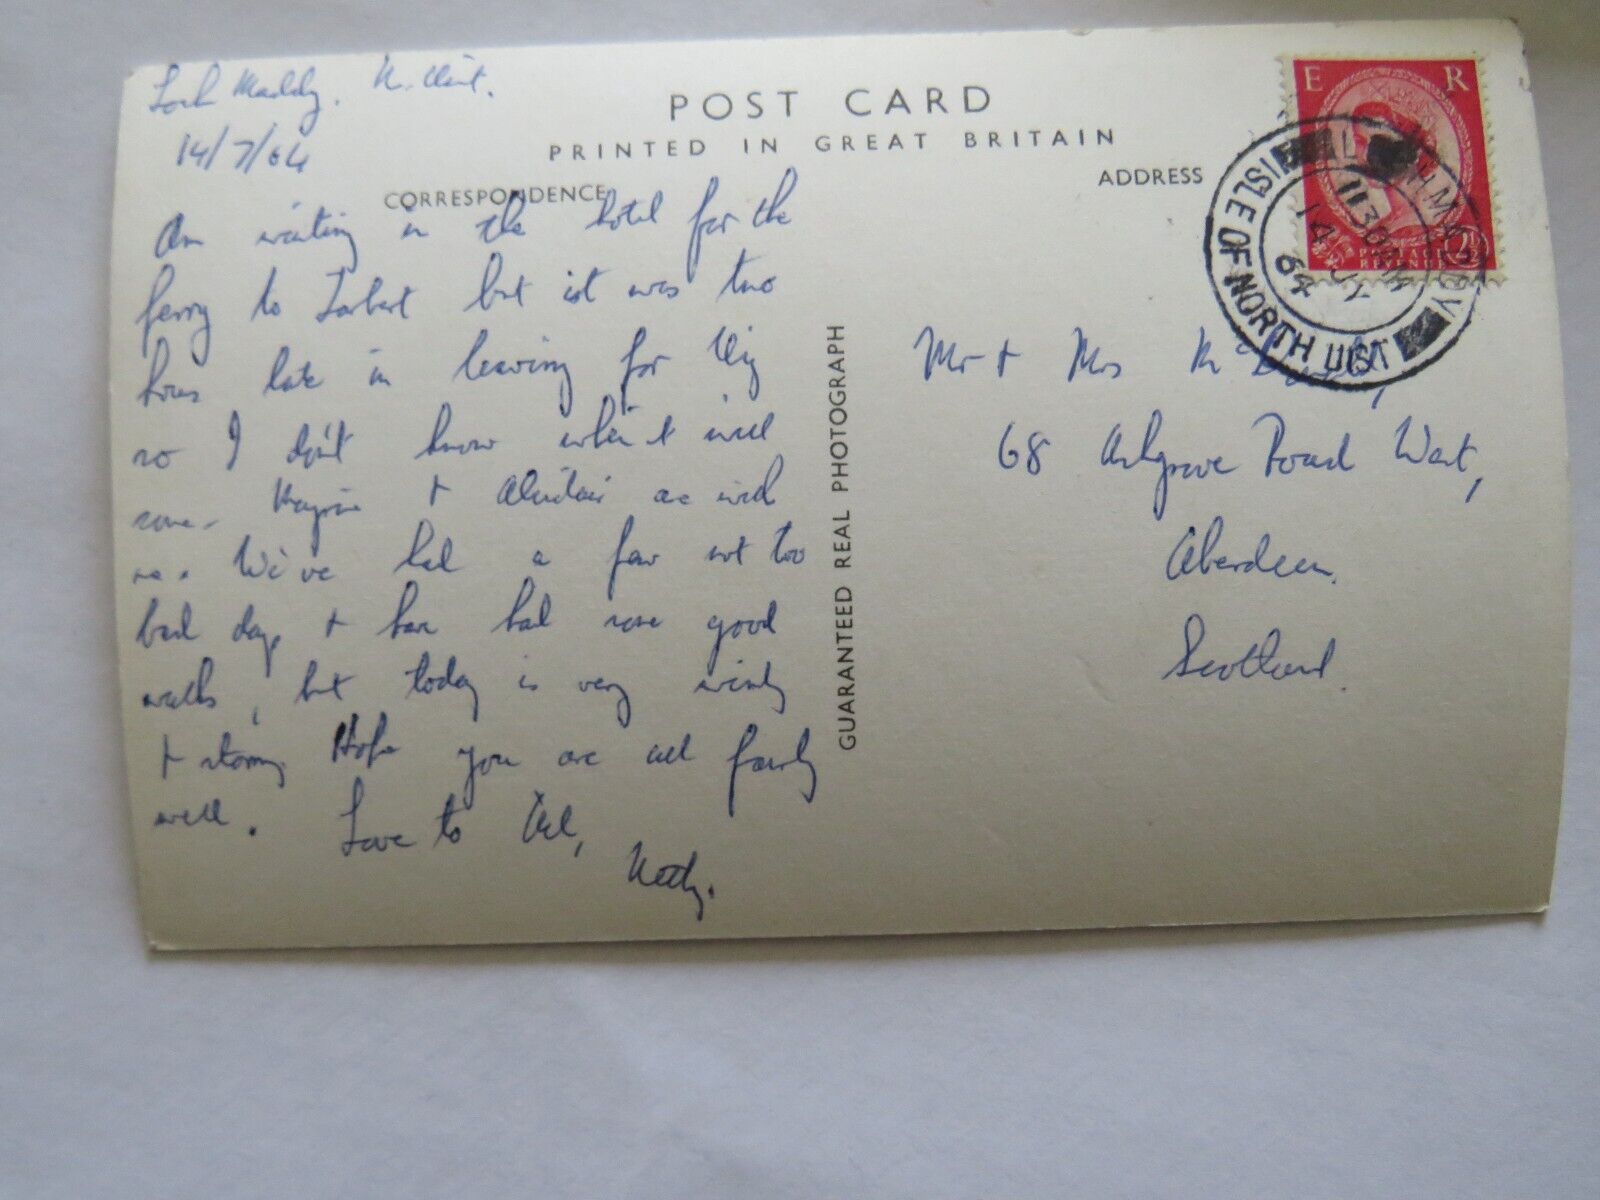 Loch Maddy. N. Uist.
14/7/64
POST CARD
PRINTED IN GREAT BRITAIN
CORRESPONDENCE
ADDRESS
Am waiting in the hotel for the
ferry to Tarbert but it was two
hours late in leaving for Uig
so I don't know when it will
come. & Alistair are with
me. We've had a few not too
bad days & have had some good
walks, but today is very windy
& stormy. Hope you are all fairly
well. Love to All,
GUARANTEED REAL PHOTOGRAPH
E R
POSTAGE
REVENUE
2½
LOCHMADDY
ISLE OF NORTH UIST
1130AM
14 JY
64
Mr & Mrs
68 Ashgrove Road West,
Aberdeen.
Scotland.